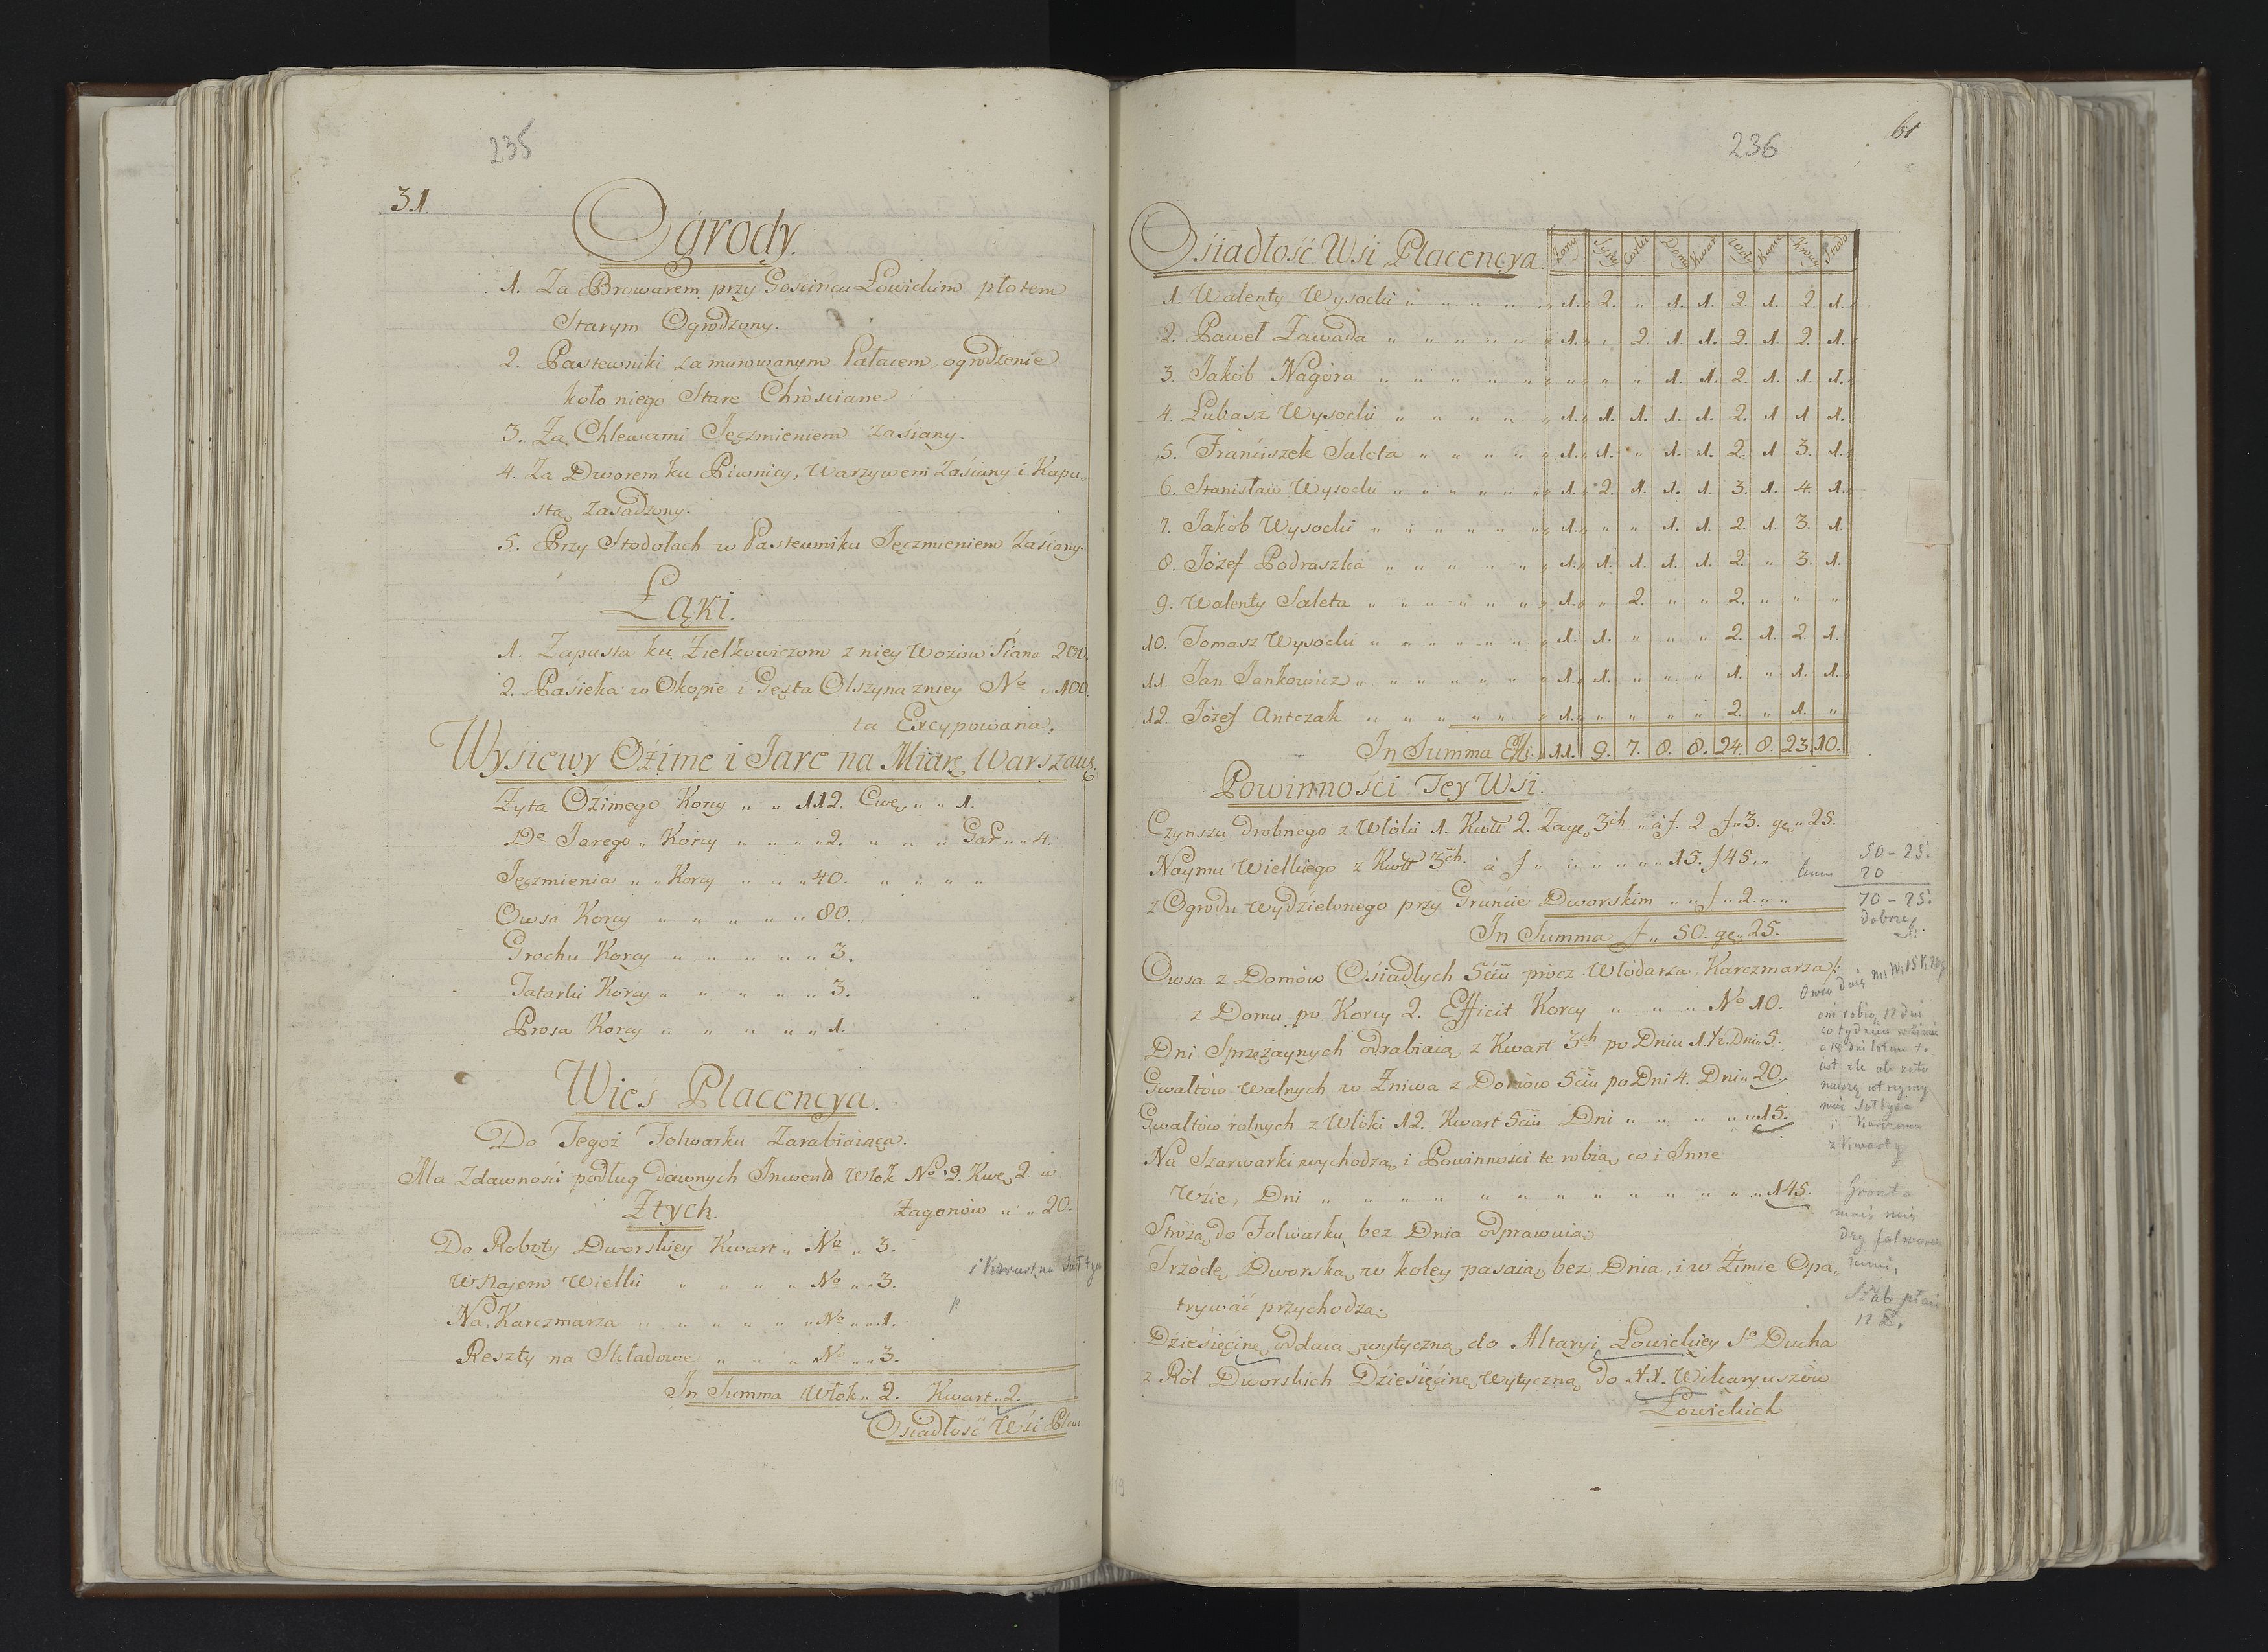 235
31.
Ogrody.
1. Za Browarem przy Goscincu Łowickim płotem
Starym Ogrodzony.
2. Pastewniki za murowanym Pałacem, ogrodzenie
koło niego Stare Chrósciane
3. Za Chlewami Jęczmieniem zasiany.
4. Za Dworem ku Piwnicy, Warzywem Zasiany i Kapu„
stą zasadzony.
5. Przy Stodołach w Pastewniku Jęczmieniem Zasiany.
Łąki.
1. Zapusta ku Zielkowiczom z niey Wozów Siana 200.
2. Pasieka w Okopie i Gęsta Olszyna z niey No „ 100.
ta Excypowana.
Wysiewy Oźime i Jare na Miarę Warszaws.
Zyta Oźimego Korcy „ „ 112. Cwę „ „ 1.
Do Jarego „ Korcy „ „ „ „ 2. „ „ „ Gar „ „ 4.
Jęczmienia „ „ Korcy „ „ „ 40. „ „ „ „
Owsa Korcy „ „ „ „ „ 80.
Grochu Korcy „ „ „ „ „ 3.
Tatarki Korcy „ „ „ „ „ 3.
Prosa Korcy „ „ „ „ „ 1.
Wieś Placencya.
Do Tegoż Folwarku Zarabiaiąca.
Ma Zdawności podług dawnych Inwent Włók No 2. Kwę 2. i
Ztych. Zagonów „ „ 20.
Do Roboty Dworskiey Kwart „ No „ 3.
W Najem Wielki „ „ „ „ No „ „ 3.
Na Karczmarza „ „ „ „ „ No „ „ 1.
Reszty na Składowe „ „ „ No „ „ 3.
In Summa Włók „ 2. Kwart „ 2.
Osiadłość Wśi Plac
236
Ośiadłość Wśi Placencya. Zony Syny Corki Domy Kwart Woły Konie Krowy
1. Walenty Wysocki „ „ „ „ „ 1. 2. „ 1. 1. 2. 1. 2. 1.
2. Paweł Zawada „ „ „ „ „ 1. „ 2. 1. 1. 2. 1. 2. 1.
3. Jakób Nagóra „ „ „ „ „ „ „ „ 1. 1. 2. 1. 1. 1.
4. Łukasz Wysocki „ „ „ „ „ 1. 1. 1. 1. 1. 2. 1 1 1.
5. Franciszek Saleta „ „ „ „ 1. 1. „ 1. 1. 2. 1 3. 1.
6. Stanisław Wysocki „ „ „ „ „ 1. 2. 1. 1. 1. 3. 1. 4. 1.
7. Jakób Wysocki „ „ „ „ „ 1. „ „ 1. 1. 2. 1. 3. 1.
8. Józef Podraszka „ „ „ „ „ 1. 1. 1. 1. 1. 2. „ 3. 1.
9. Walenty Saleta „ „ „ „ „ 1. „ 2. „ „ 2. „ „ „
10. Tomasz Wysocki „ „ „ „ „ 1. 1. „ „ „ 2. 1. 2. 1.
11. Jan Jankowicz „ „ „ „ „ 1. 1. „ „ „ 1. „ 1. 1.
12. Józef Antczak „ „ „ „ „ 1. „ „ „ „ 2. „ 1. „
In Summa Effi. 11. 9. 7. 8. 8. 24. 8. 23. 10.
Powinności Tey Wśi.
Czynszu drobnego z Włóki 1. Kwtt 2. Zagę 3ch „ á f. 2. f „ 3. gę „ 25.
Naymu Wielkiego z Kwtt 3ch. á f „ „ „ „ „ 15. f 45. „
z Ogrodu wydzielonego przy Gruńcie Dworskim „ „ f „ 2. „ „
In Summa f „ 50. gę „ 25.
50 - 25.
20
70 - 25.
dobrze
Owsa z Domów Ośiadłych 5ciu prócz Włodarza, Karczmarza
z Domu po Korcy 2. Efficit Korcy „ „ „ No 10.
Dni Sprzężaynych odrabiaią z Kwart 3ch po Dniu 1 ½. Dni „ 5.
Gwałtów Walnych w Żniwa z Domów 5ciu po Dni 4. Dni „ 20.
Gwałtów rolnych z Włóki 12. Kwart 5ciu Dni „ „ „ „ „ 15.
Na Szarwarki wychodzą i Powinności te robią co i Inne
Wśie, Dni „ „ „ „ „ „ „ „ „ „ „ „ 145.
Stróżą do Folwarku bez Dnia odprawuią
Trzódę Dworską w koley pasaią bez Dnia, i w Źimie Opa„
trywać przychodzą.
Dźiesięcinę oddaią wytyczną do Altaryi Łowickiey So Ducha
z Ról Dworskich Dźiesięćinę Wytyczną do X.X. Wikaryuszów
Łowickich
oni robią 12 dni
co tydzień w zimie
a 18 dni latem
z kwarty
Gronta